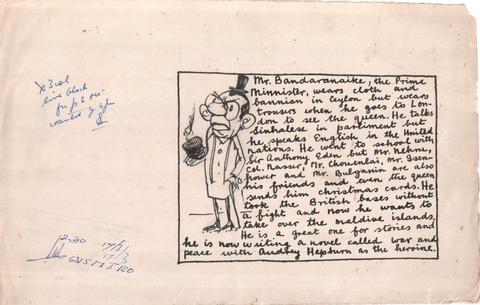 x 3 col
line block
wanted by 4 pm
Mr. Bandaranaike, the Prime
Minnister, wears cloth and
bannian in Ceylon but wears
trousers when he goes to Lon-
don to see the queen. He talks
Sinhalese in parliment but
he speaks English in the United
nations. He went to school with
Sir Anthony Eden but Mr. Nehru,
Col. Nasser, Mr. Chouenlai, Mr. Isen-
hower and Mr. Bulganin are also
his friends and even the queen
sends him christmas cards. He
took the British bases without
a fight and now he wants to
take over the maldive islands.
He is a great one for stories and
he is now writing a novel called war and
peace with Audrey Hepburn as the heroine.
12.30 17/3
17/3